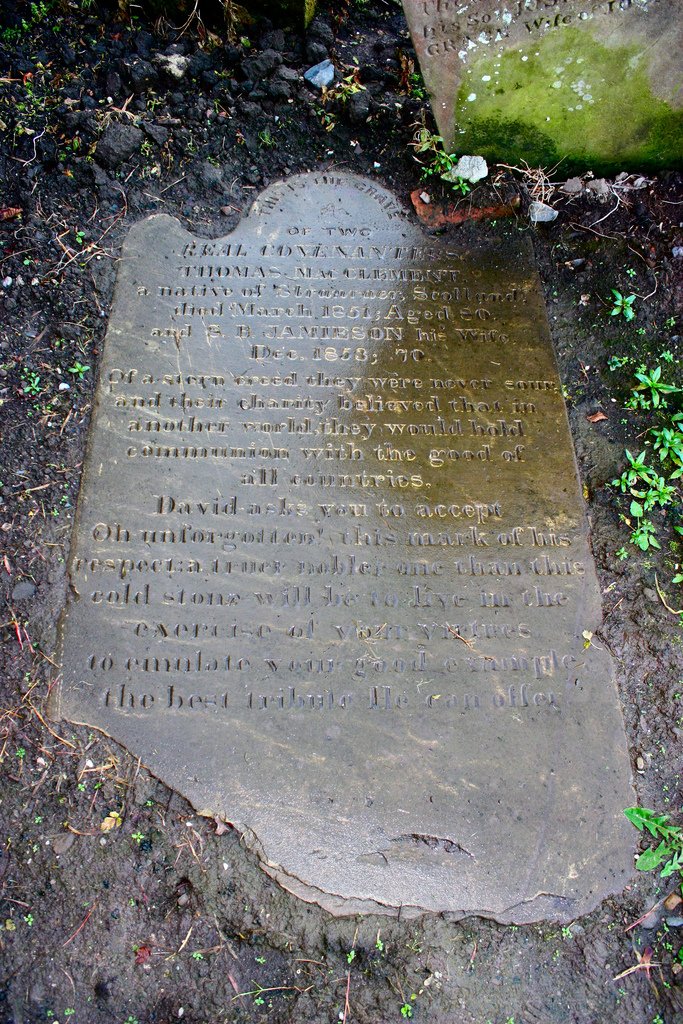 The
his Son JOSE
GRACE Wife of Jo
THIS IS THE GRAVE
OF TWO
REAL COVENANTERS.
THOMAS MACCLEMENT
a native of Stranraer, Scotland,
died March, 1851; Aged 80.
and S. B. JAMIESON his Wife
Dec. 1858; 70.
Of a stern creed they were never sour
and their charity believed that in
another world, they would hold
communion with the good of
all countries.
David asks you to accept
Oh unforgotten! this mark of his
respect: a truer nobler one than this
cold stone will be to live in the
exercise of your virtues
to emulate your good example,
the best tribute He can offer